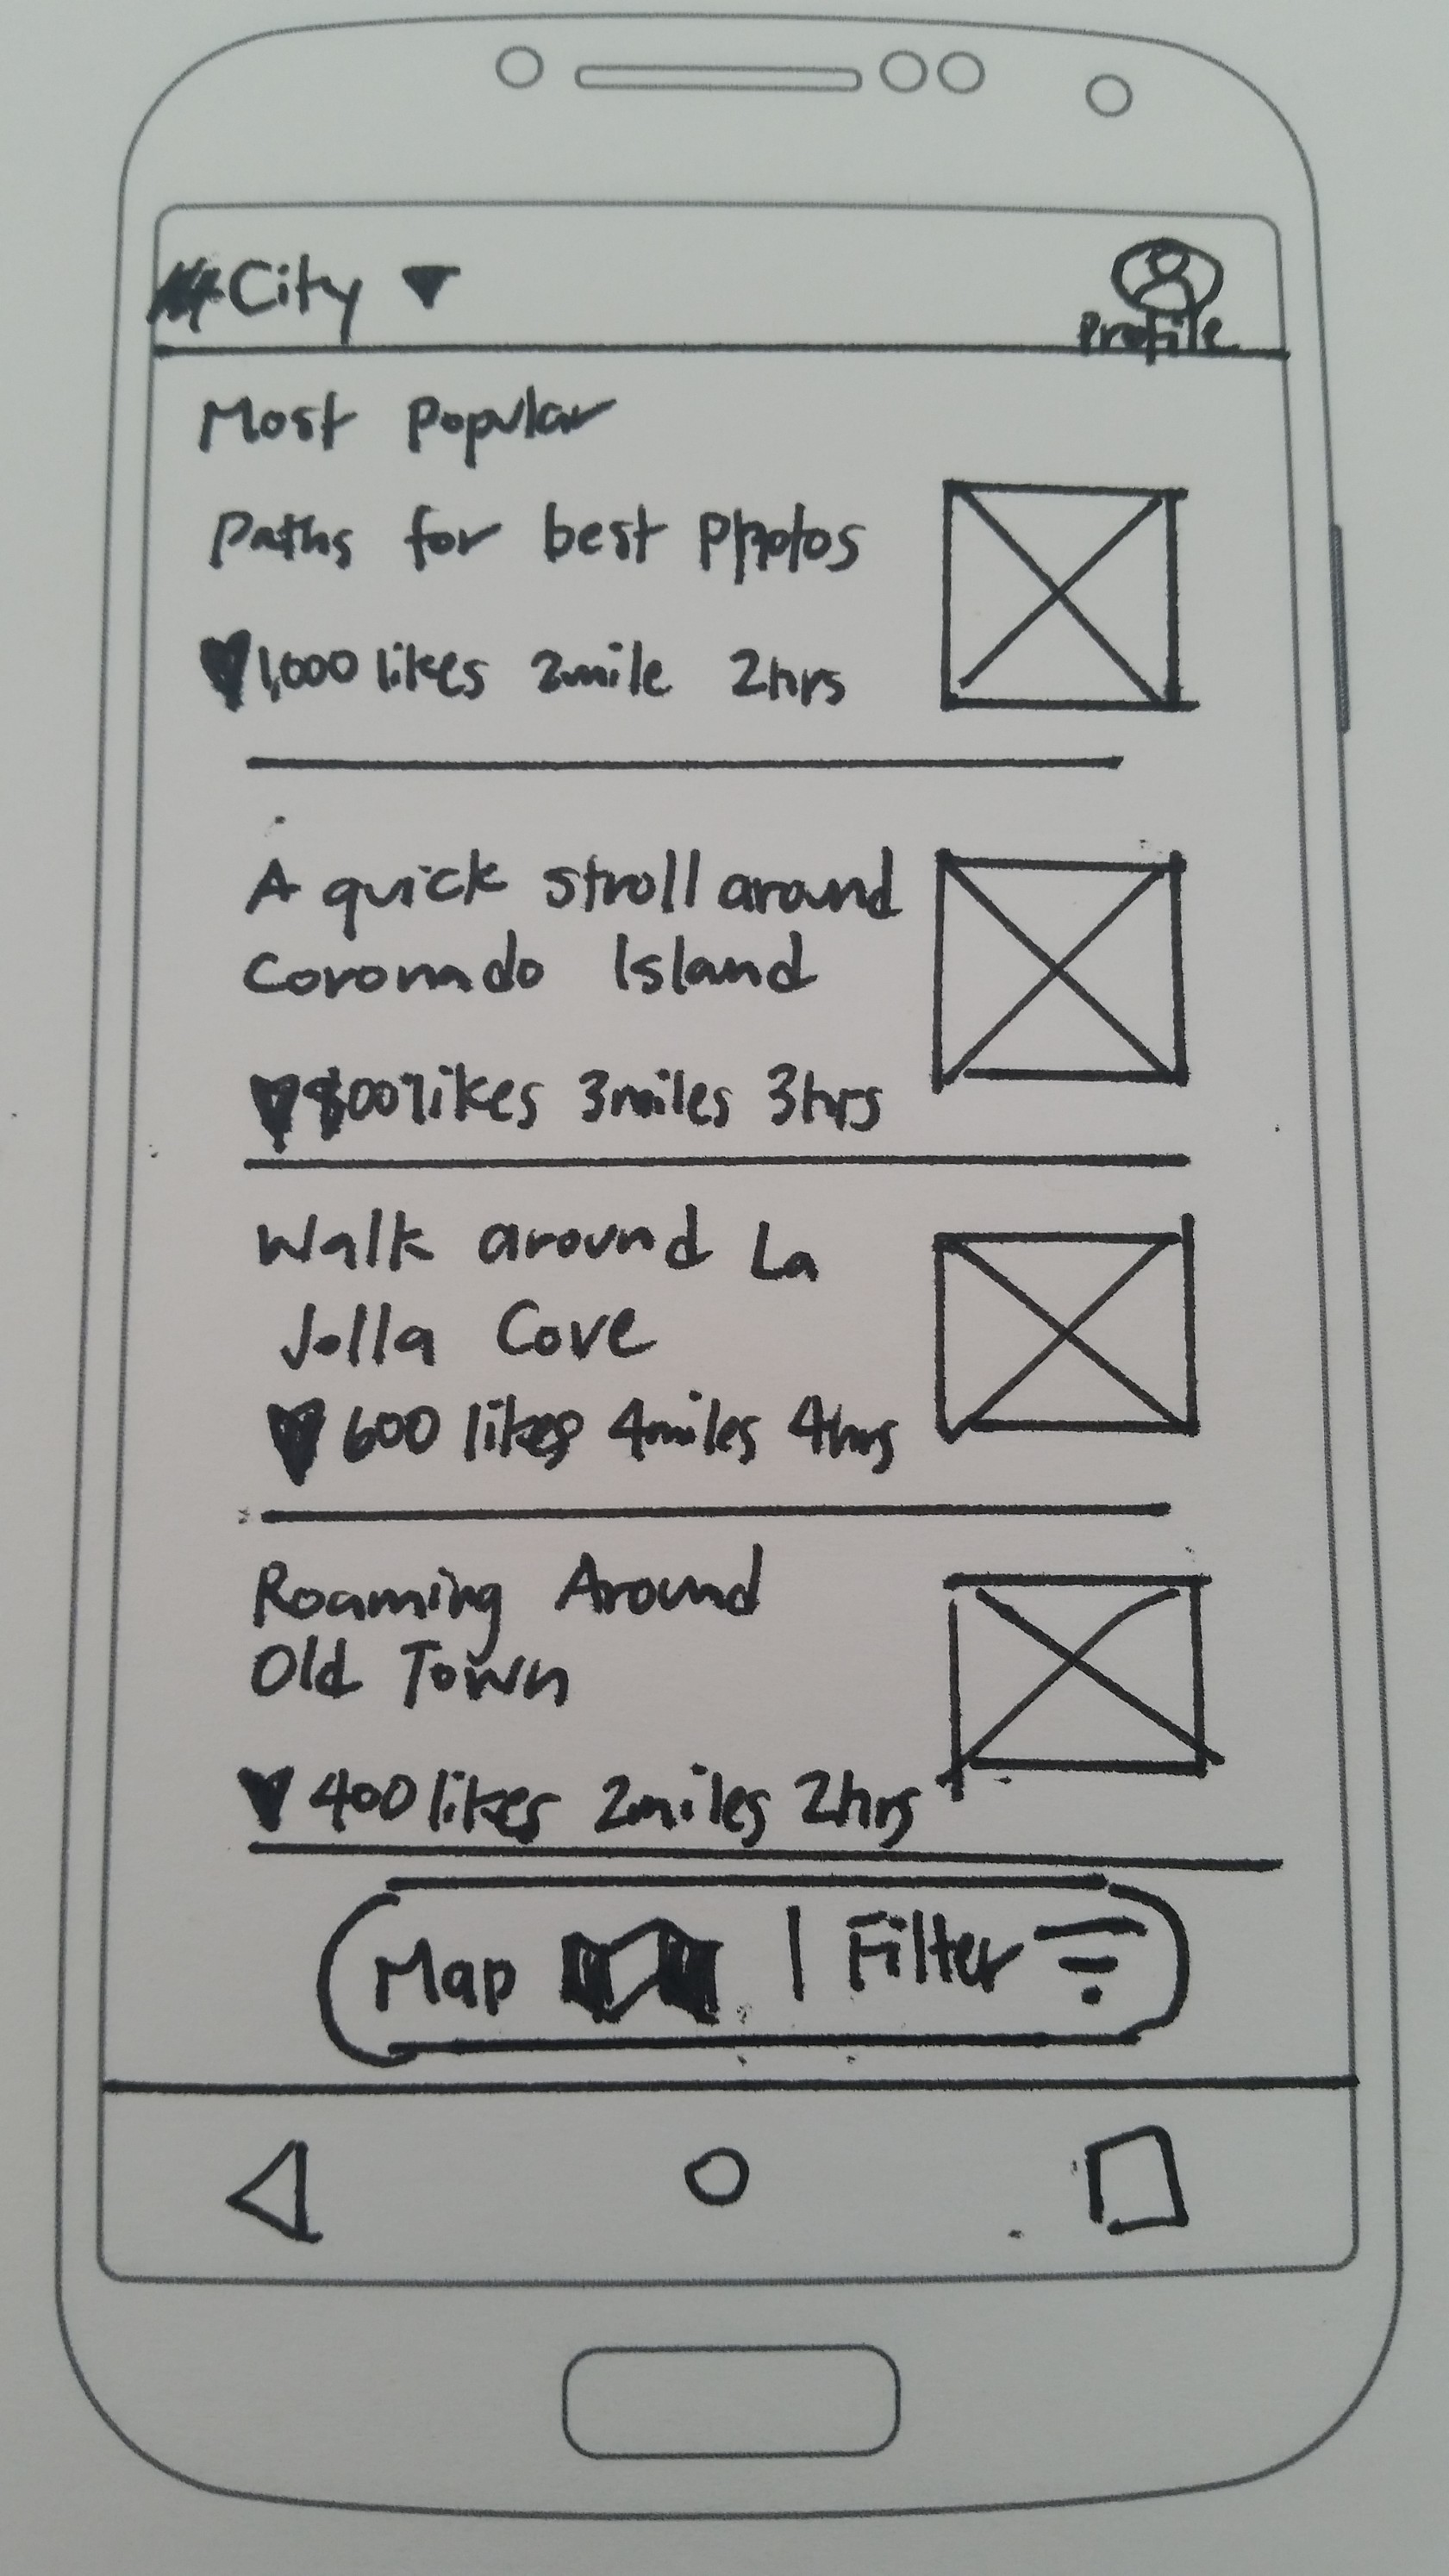 City
Profile
Most Popular
Paths for best Photos
1,000 likes 2mile 2hrs
A quick stroll around
Coronado Island
800 likes 3miles 3hrs
Walk around La
Jolla Cove
600 likes 4miles 4hrs
Roaming Around
Old Town
400 likes 2miles 2hrs
Map | Filter